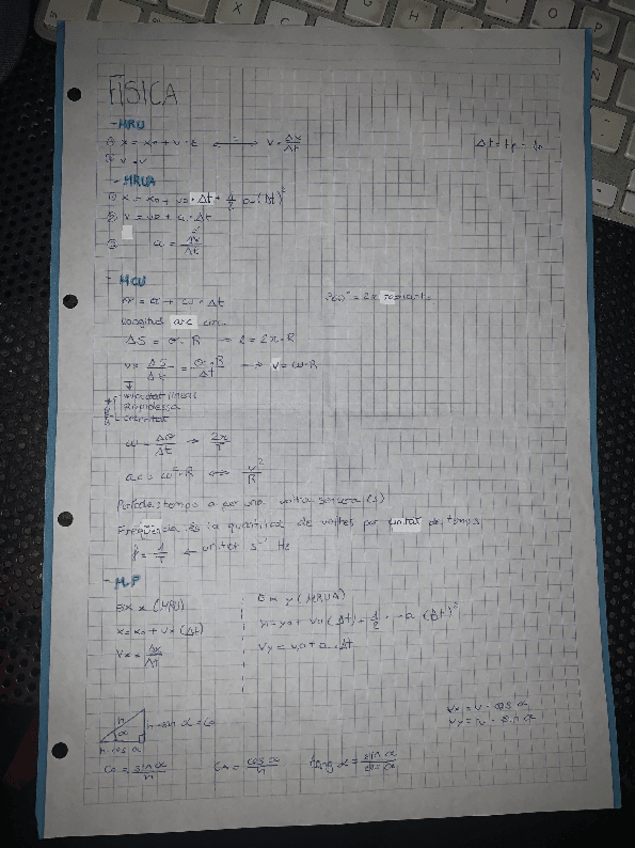 FÍSICA
- MRU
① x = x₀ + v · t ⟷ v = Δx/Δt
Δt = tf - t₀
② v = v
- MRUA
① x = x₀ + v₀ · Δt + 1/2 a (Δt)²
② v = v₀ + a · Δt
③ a = Δv/Δt
- MCU
+ ω · Δt
360° = 2π
Longitud arc
ΔS = σ · R → l = 2π · R
v = ΔS/Δt = σ · R/Δt → v = ω · R
velocitat lineal
Rapidessa
ω = Δσ/Δt → 2π/T
ac = ω² · R ⟷ v²/R
Període: temps a per una volta sencera (s)
Freqüència és la quantitat de voltes per unitat de temps
f = 1/T ← unitat s⁻¹ Hz
- M.P
Eix x (MRU)
x = x₀ + vx (Δt)
vx = Δx/Δt
Eix y (MRUA)
y = y₀ + v₀ (Δt) + 1/2 · -a (Δt)²
vy = v₀ + a · Δt
vx = v · cos α
vy = v · sin α
h
α
h · sin α = Co
h · cos α
Co = sin α/h
Ca = cos α/h
tang α = sin α/cos α